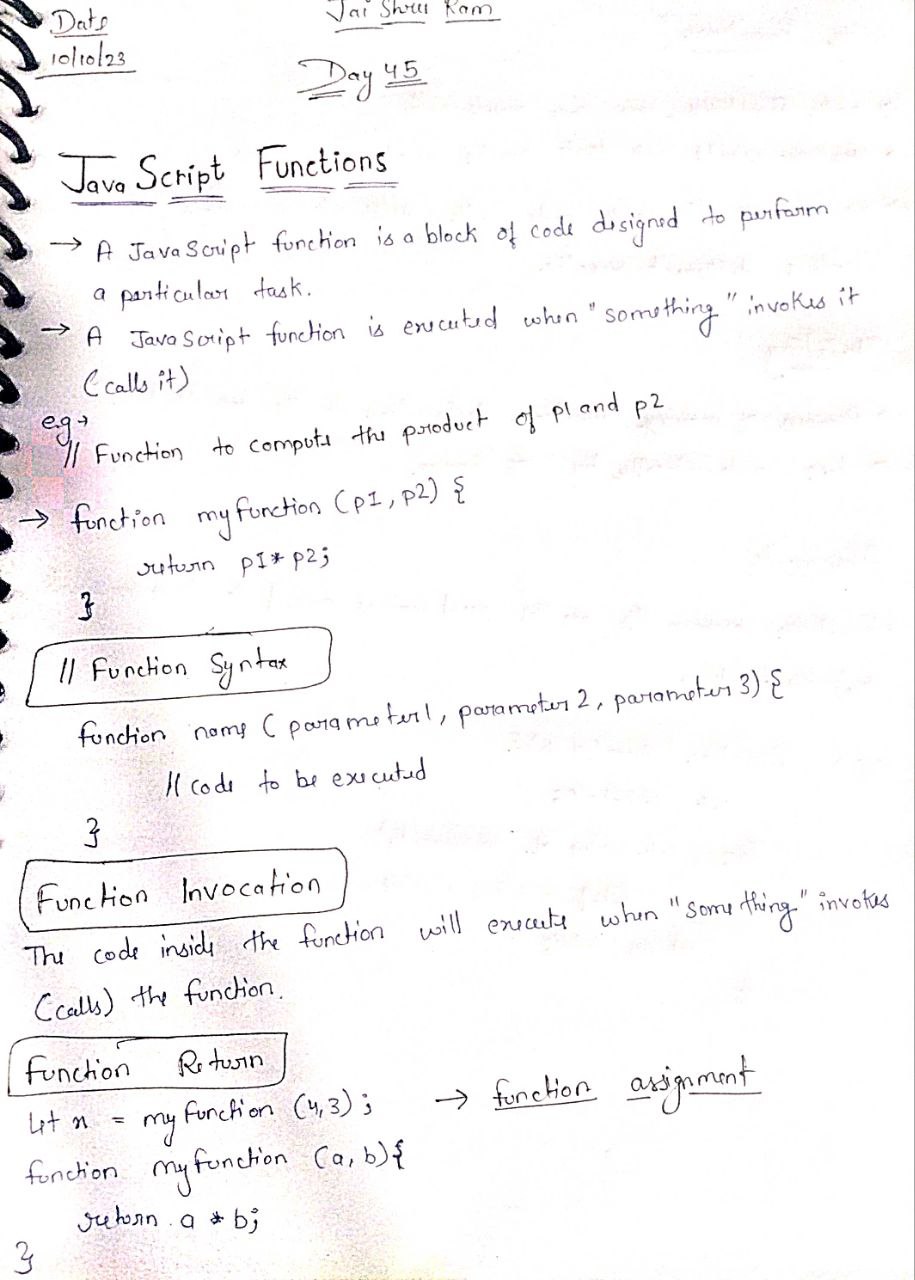 Date
Jai Shree Ram
10/10/23
Day 45
JavaScript Functions
→ A JavaScript function is a block of code designed to perform
a particular task.
→ A JavaScript function is executed when "something" invokes it
(calls it)
e.g →
// Function to compute the product of p1 and p2
→ function myfunction (p1, p2) {
return p1 * p2;
}
// Function Syntax
function name (parameter1, parameter 2, parameter 3) {
// code to be executed
}
Function Invocation
The code inside the function will execute when "something" invokes
(calls) the function.
Function Return
let x = myfunction (4,3); → function assignment
function myfunction (a, b) {
return a * b;
}